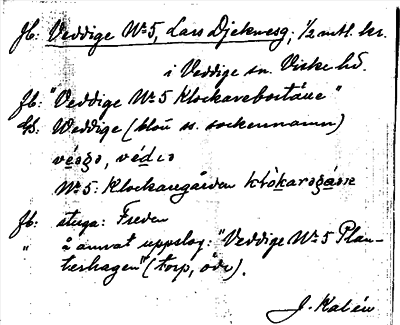 Jb: Veddige Nº 5, Lars Djekneg; 1/2 mtl. kr.
i Veddige sn. Viske hd.
Jb: "Veddige Nº 5 Klockarebostället"
Us. Weddige (blott ss. sockennamn)
Nº 5: Klockaregården
Jb: stuga: Freden
" å annat uppslag: "Veddige Nº 5 Plan-
terhagen" (torp, öde).
J. Kalén